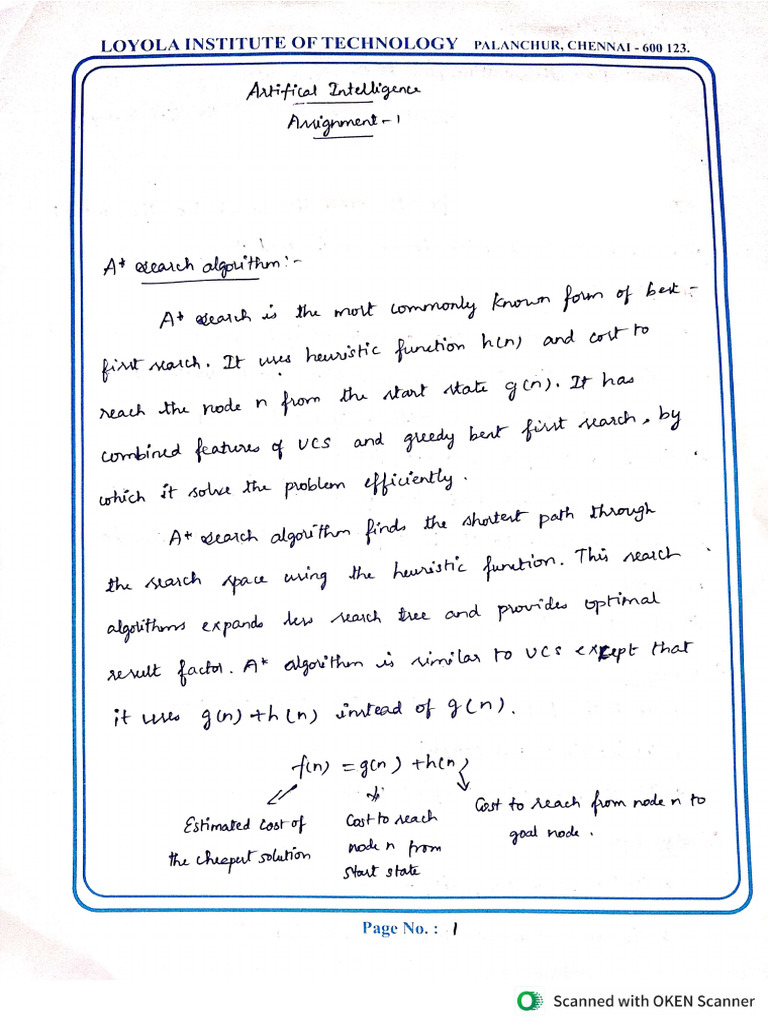 LOYOLA INSTITUTE OF TECHNOLOGY PALANCHUR, CHENNAI - 600 123.
Artifical Intelligence
Assignment - 1
A* search algorithm:-
A* search is the most commonly known form of best-
first search. It uses heuristic function h(n) and cost to
reach the node n from the start state g(n). It has
combined features of UCS and greedy best first search, by
which it solve the problem efficiently.
A* search algorithm finds the shortest path through
the search space using the heuristic function. This search
algorithms expands less search tree and provides optimal
result factor. A* algorithm is similar to UCS except that
it uses g(n) + h(n) instead of g(n).
f(n) = g(n) + h(n)
Estimated cost of
the cheapest solution
Cost to reach
node n from
start state
Cost to reach from node n to
goal node.
Page No. : 1
Scanned with OKEN Scanner